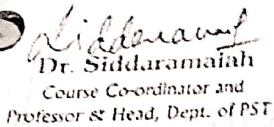 Siddaramaiah
Dr. Siddaramaiah
Course Co-ordinator and
Professor & Head, Dept. of PST